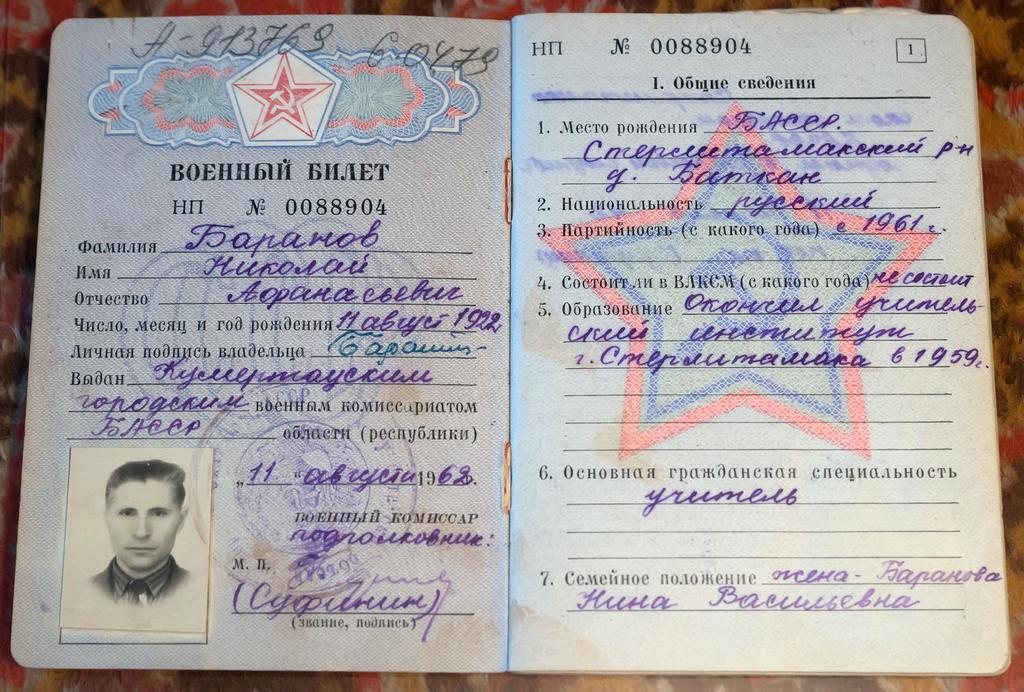 А-913769 6 0479
ВОЕННЫЙ БИЛЕТ
НП № 0088904
Фамилия Баранов
Имя Николай
Отчество Афанасьевич
Число, месяц и год рождения 11 август 1922
Личная подпись владельца
Выдан Кумертауским
городским военным комиссариатом
БАССР области (республики)
„11“ августа 1962г.
ВОЕННЫЙ КОМИССАР
подполковник:
М. П.
(Суфянин)
(звание, подпись)
НП № 0088904
1
I. Общие сведения
1. Место рождения БАССР.
Стерлитамакский р-н
д. Баткан
2. Национальность русский
3. Партийность (с какого года) с 1961 г.
4. Состоит ли в ВЛКСМ (с какого года) не состоит
5. Образование Окончил учитель-
ский институт
г. Стерлитамака в 1959г.
6. Основная гражданская специальность
учитель
7. Семейное положение жена - Баранова
Нина Васильевна